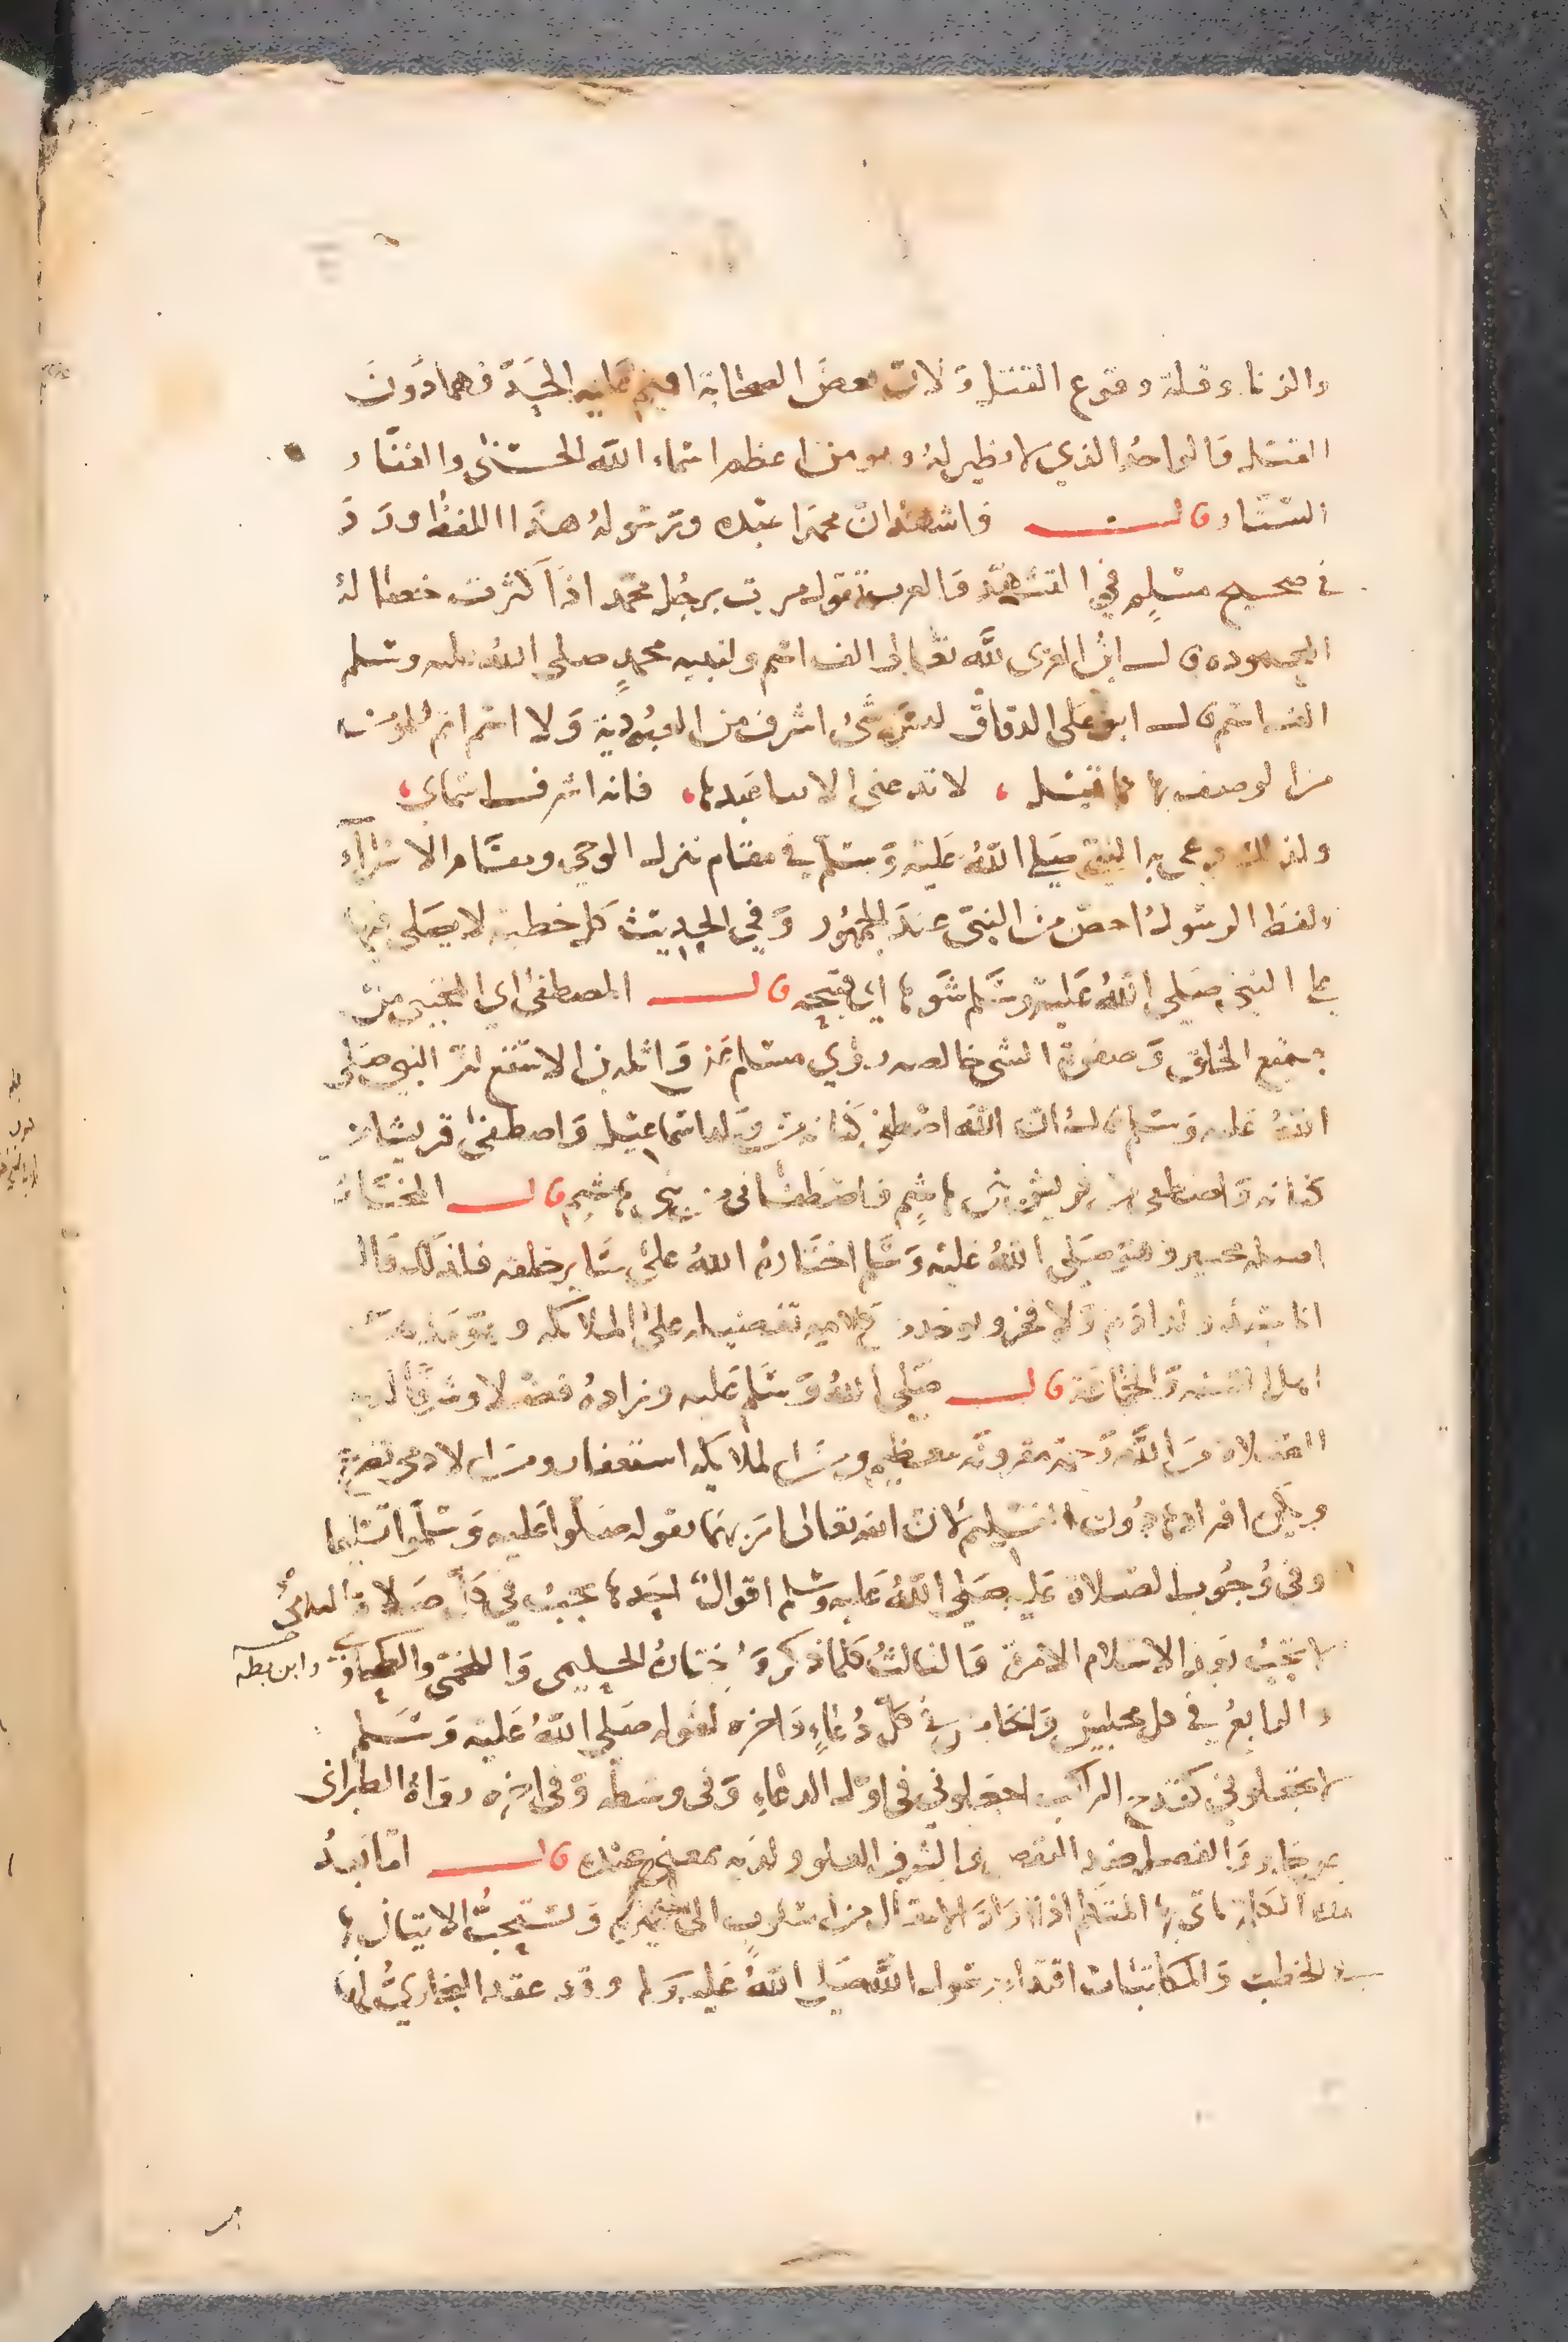 والزنا وقلة وقوع القتل ولان بعض الصحابة اقيم عليه الحد فيما دون
القتل قال الواحد الذي لا نظير له وهو من اعظم اسماء الله الحسنى والغفار
الستار قال فاشهد ان محمدا عبده ورسوله هذا اللفظ ورد
في صحيح مسلم في التشهد قال العرب تقول مررت برجل محمد اذا كثرت خصاله
المحموده قال ابن العربي لله تعالى الف اسم ولنبيه محمد صلى الله عليه وسلم
الف اسم قال ابو علي الدقاق ليس شئ اشرف من العبودية ولا اسم اتم للمؤمن
من الوصف بها كما قيل ، لا تدعني الا بيا عبدها ، فانه اشرف اسماي ،
ولذلك دعي به النبي صلى الله عليه وسلم في مقام نزل الوحي ومقام الاسراء
ولفظ الرسول اخص من النبي عند الجمهور وفي الحديث كل خطبة لا يصلى فيها
على النبي صلى الله عليه وسلم شوها اي قبيحه قال المصطفى اي المجتبى من
جميع الخلق وصفوة الشي خالصه روي مسلم عن واثلة بن الاسقع ان النبي صلى
الله عليه وسلم قال ان الله اصطفى كنانه من ولد اسماعيل واصطفى قريشا من
كنانه واصطفى من قريش بني هاشم فاصطفاني من بني هاشم قال المختار
اصله مختير وهو صلى الله عليه وسلم اختاره الله على ساير خلقه فلذلك قال
انا سيد ولد ادم ولا فخر تفضيله على الملائكه وهو مذهب
اهل السنه والجماعة قال صلى الله وسلم عليه وزاده فضلا وشرفا لديه
الصلاة من الله رحمة مقرونة بتعظيم ومن الملايكه استغفار ومن الادمي تضرع
ويكره افرادها دون التسليم لان الله تعالى امر بهما بقوله صلوا عليه وسلموا تسليما
وفي وجوب الصلاة عليه صلى الله عليه وسلم اقوال احدها تجب في كل صلاة الثاني
لا تجب بعد الاسلام الا مرة والثالث كلما ذكر واختاره الحليمي واللخمي والطحاوي وابن بطه
والرابع في كل مجلس والخامس في كل دعاء واخره لقوله صلى الله عليه وسلم
لا تجعلوني كقدح الراكب اجعلوني في اول الدعاء وفي وسطه وفي اخره رواه الطبراني
عن جابر والفضل ضد النقص والشرف العلو ولديه بمعنى عنده قال اما بعد
هذه الكلمة ياتي بها المتكلم اذا اراد الانتقال من اسلوب الى غيره ويستحب الاتيان بها
في الخطب والمكاتبات اقتداء برسول الله صلى الله عليه وسلم وقد عقد البخاري لها